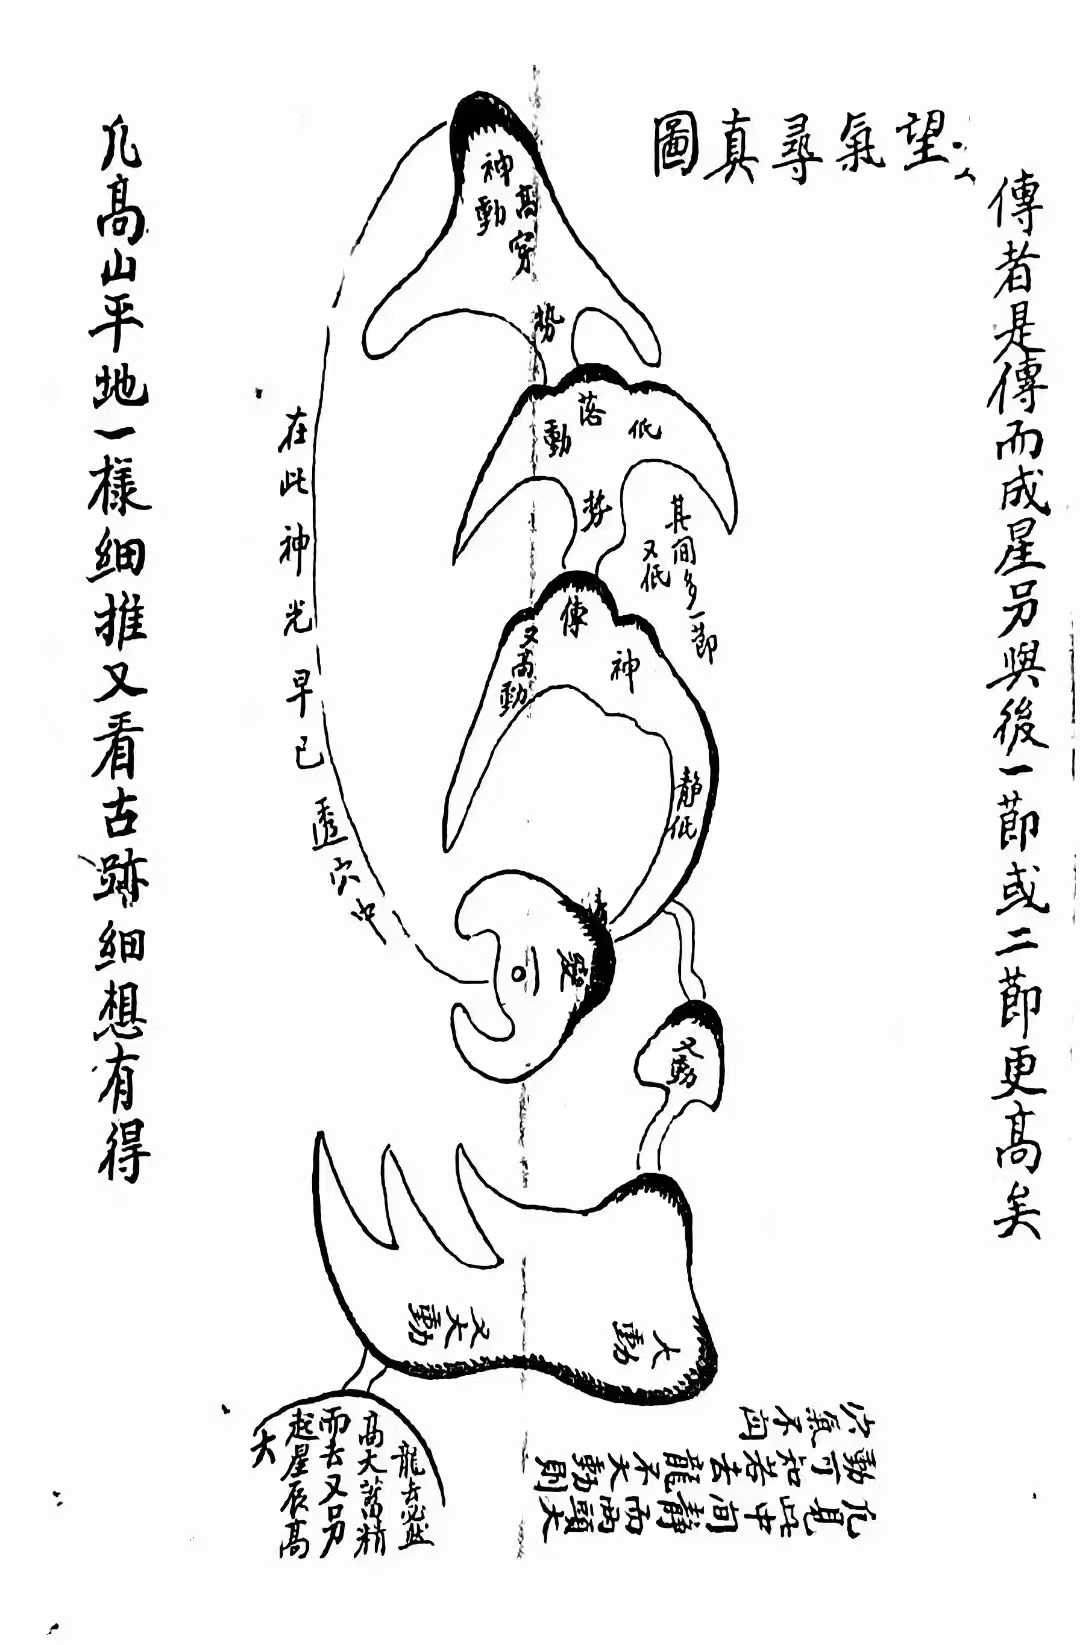 望氣尋真圖
傳者是傳而成星另與後一節或二節更高矣
神動
高穿
勢
落
動
低
勢
其間多一節
又低
傳
又高動
神
靜低
發
又動
大動
又大動
在此神光早已透穴中
凡見此中间靜而兩頭大
動可知若去龍不大動則
穴氣不
龍去必然
高大蓄精
而去又另
起星辰高
大
凡高山平地一樣細推又看古跡細想有得